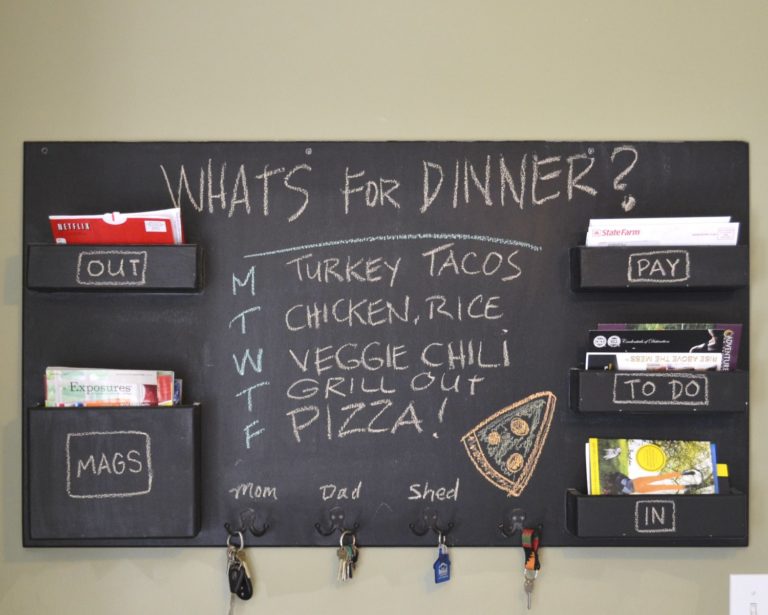 WHATS FOR DINNER?
NETFLIX
OUT
StateFarm
PAY
M TURKEY TACOS
T CHICKEN, RICE
W VEGGIE CHILI
T GRILL OUT
F PIZZA!
Exposures
MAGS
Credentials of Distinction
RISE ABOVE THE MESS
ADVENTURE
TO DO
Mom Dad Shed
IN